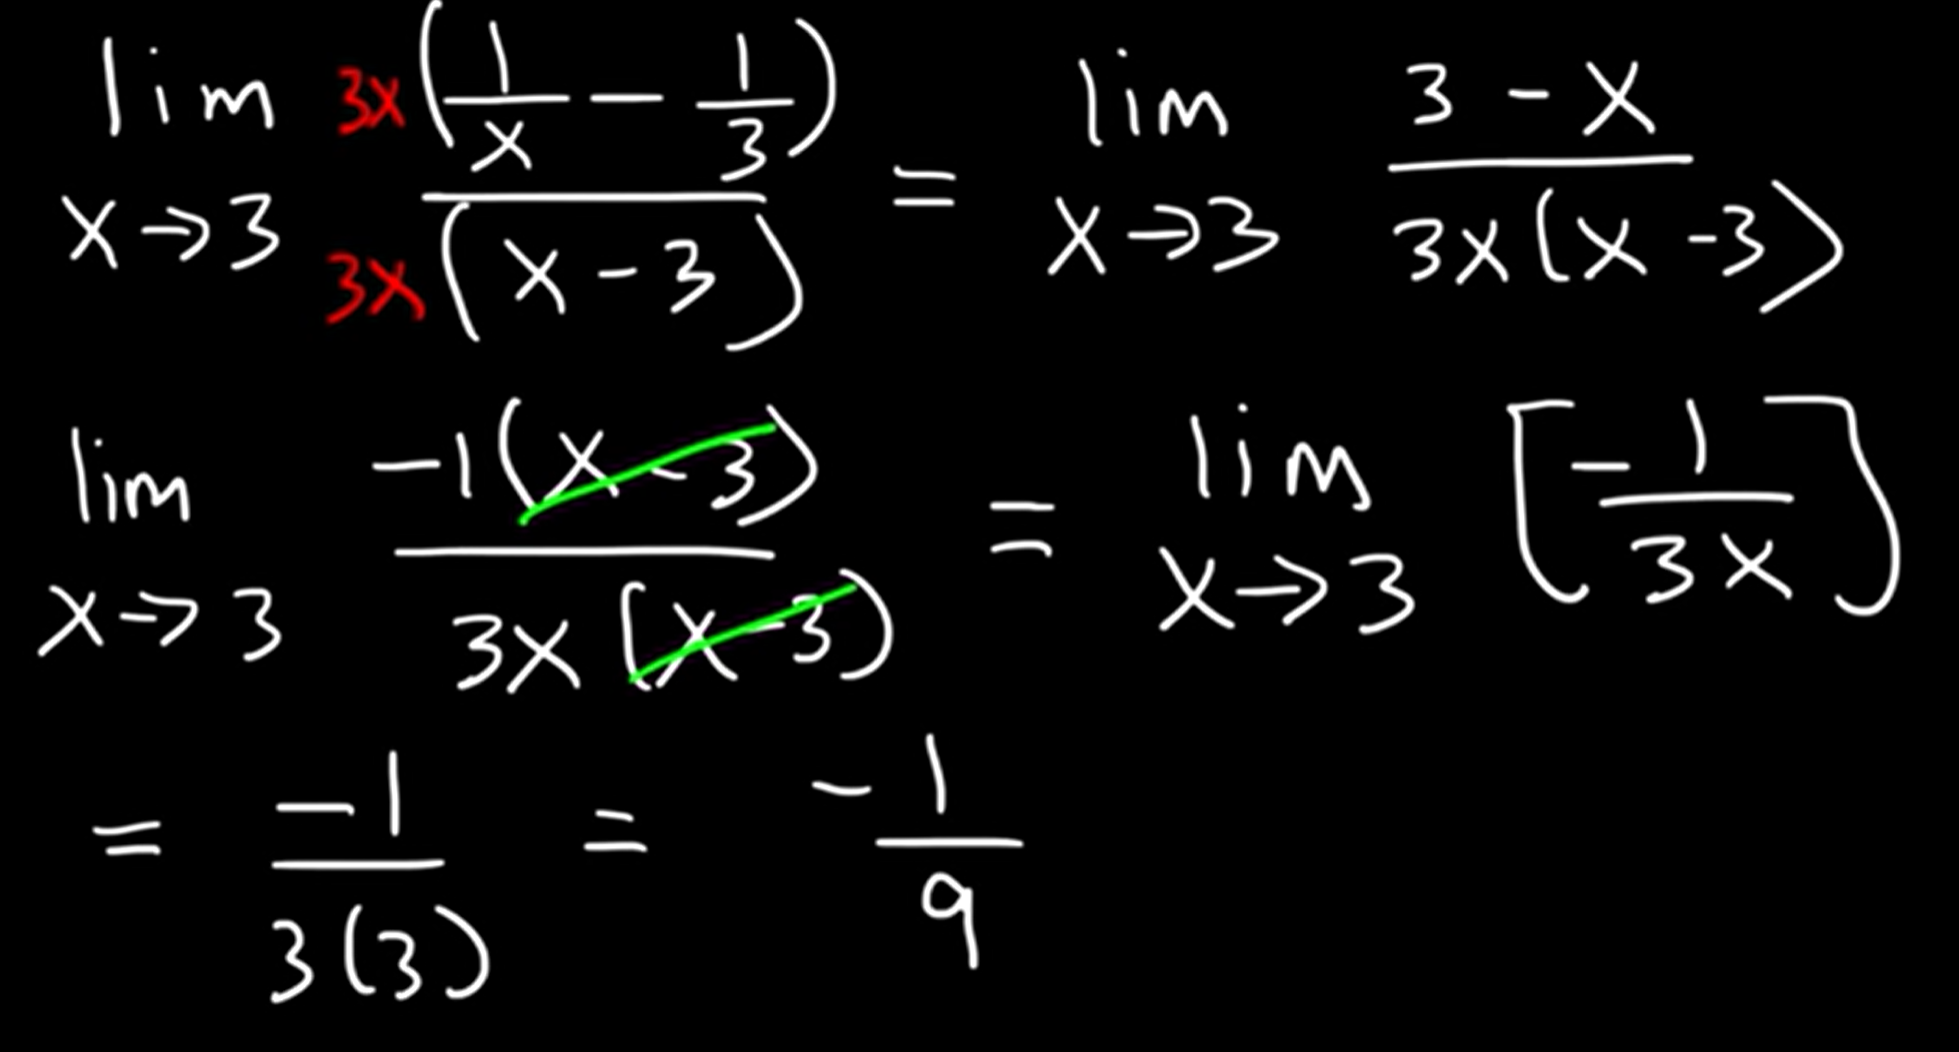 lim x→3 3x(1/x − 1/3) / 3x(x − 3) = lim x→3 (3 − x) / 3x(x − 3)
lim x→3 −1(x − 3) / 3x(x − 3) = lim x→3 [−1 / 3x]
= −1 / 3(3) = −1 / 9